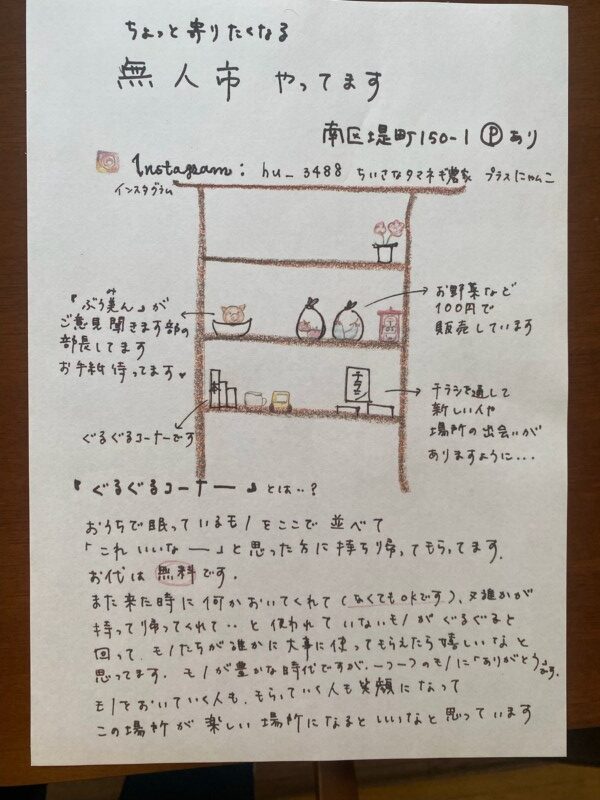 ちょっと寄りたくなる
無人市 やってます
南区堤町150-1 Ⓟあり
Instagram : hu_3488 ちいさなタマネギ農家 プラスにゃんこ
インスタグラム
『ぶう美ん』が
み
ご意見聞きます部の
部長してます
お手紙待ってます♥
お野菜など
100円で
販売しています
チラシを通して
新しい人や
場所の出会いが
ありますように...
チラシ
ぐるぐるコーナーです
『ぐるぐるコーナー』とは..?
おうちで眠っているモノをここで並べて
「これいいなー」と思った方に持ち帰ってもらってます.
お代は無料です.
また来た時に何かおいてくれて(なくてもOKです)、又誰かが
持って帰ってくれて..と使われていないモノがぐるぐると
回って、モノたちが誰かに大事に使ってもらえたら嬉しいなと
思ってます. モノが豊かな時代ですが、一つ一つのモノに「ありがとう」
モノをおいていく人も、もらっていく人も笑顔になって
この場所が楽しい場所になるといいなと思っています